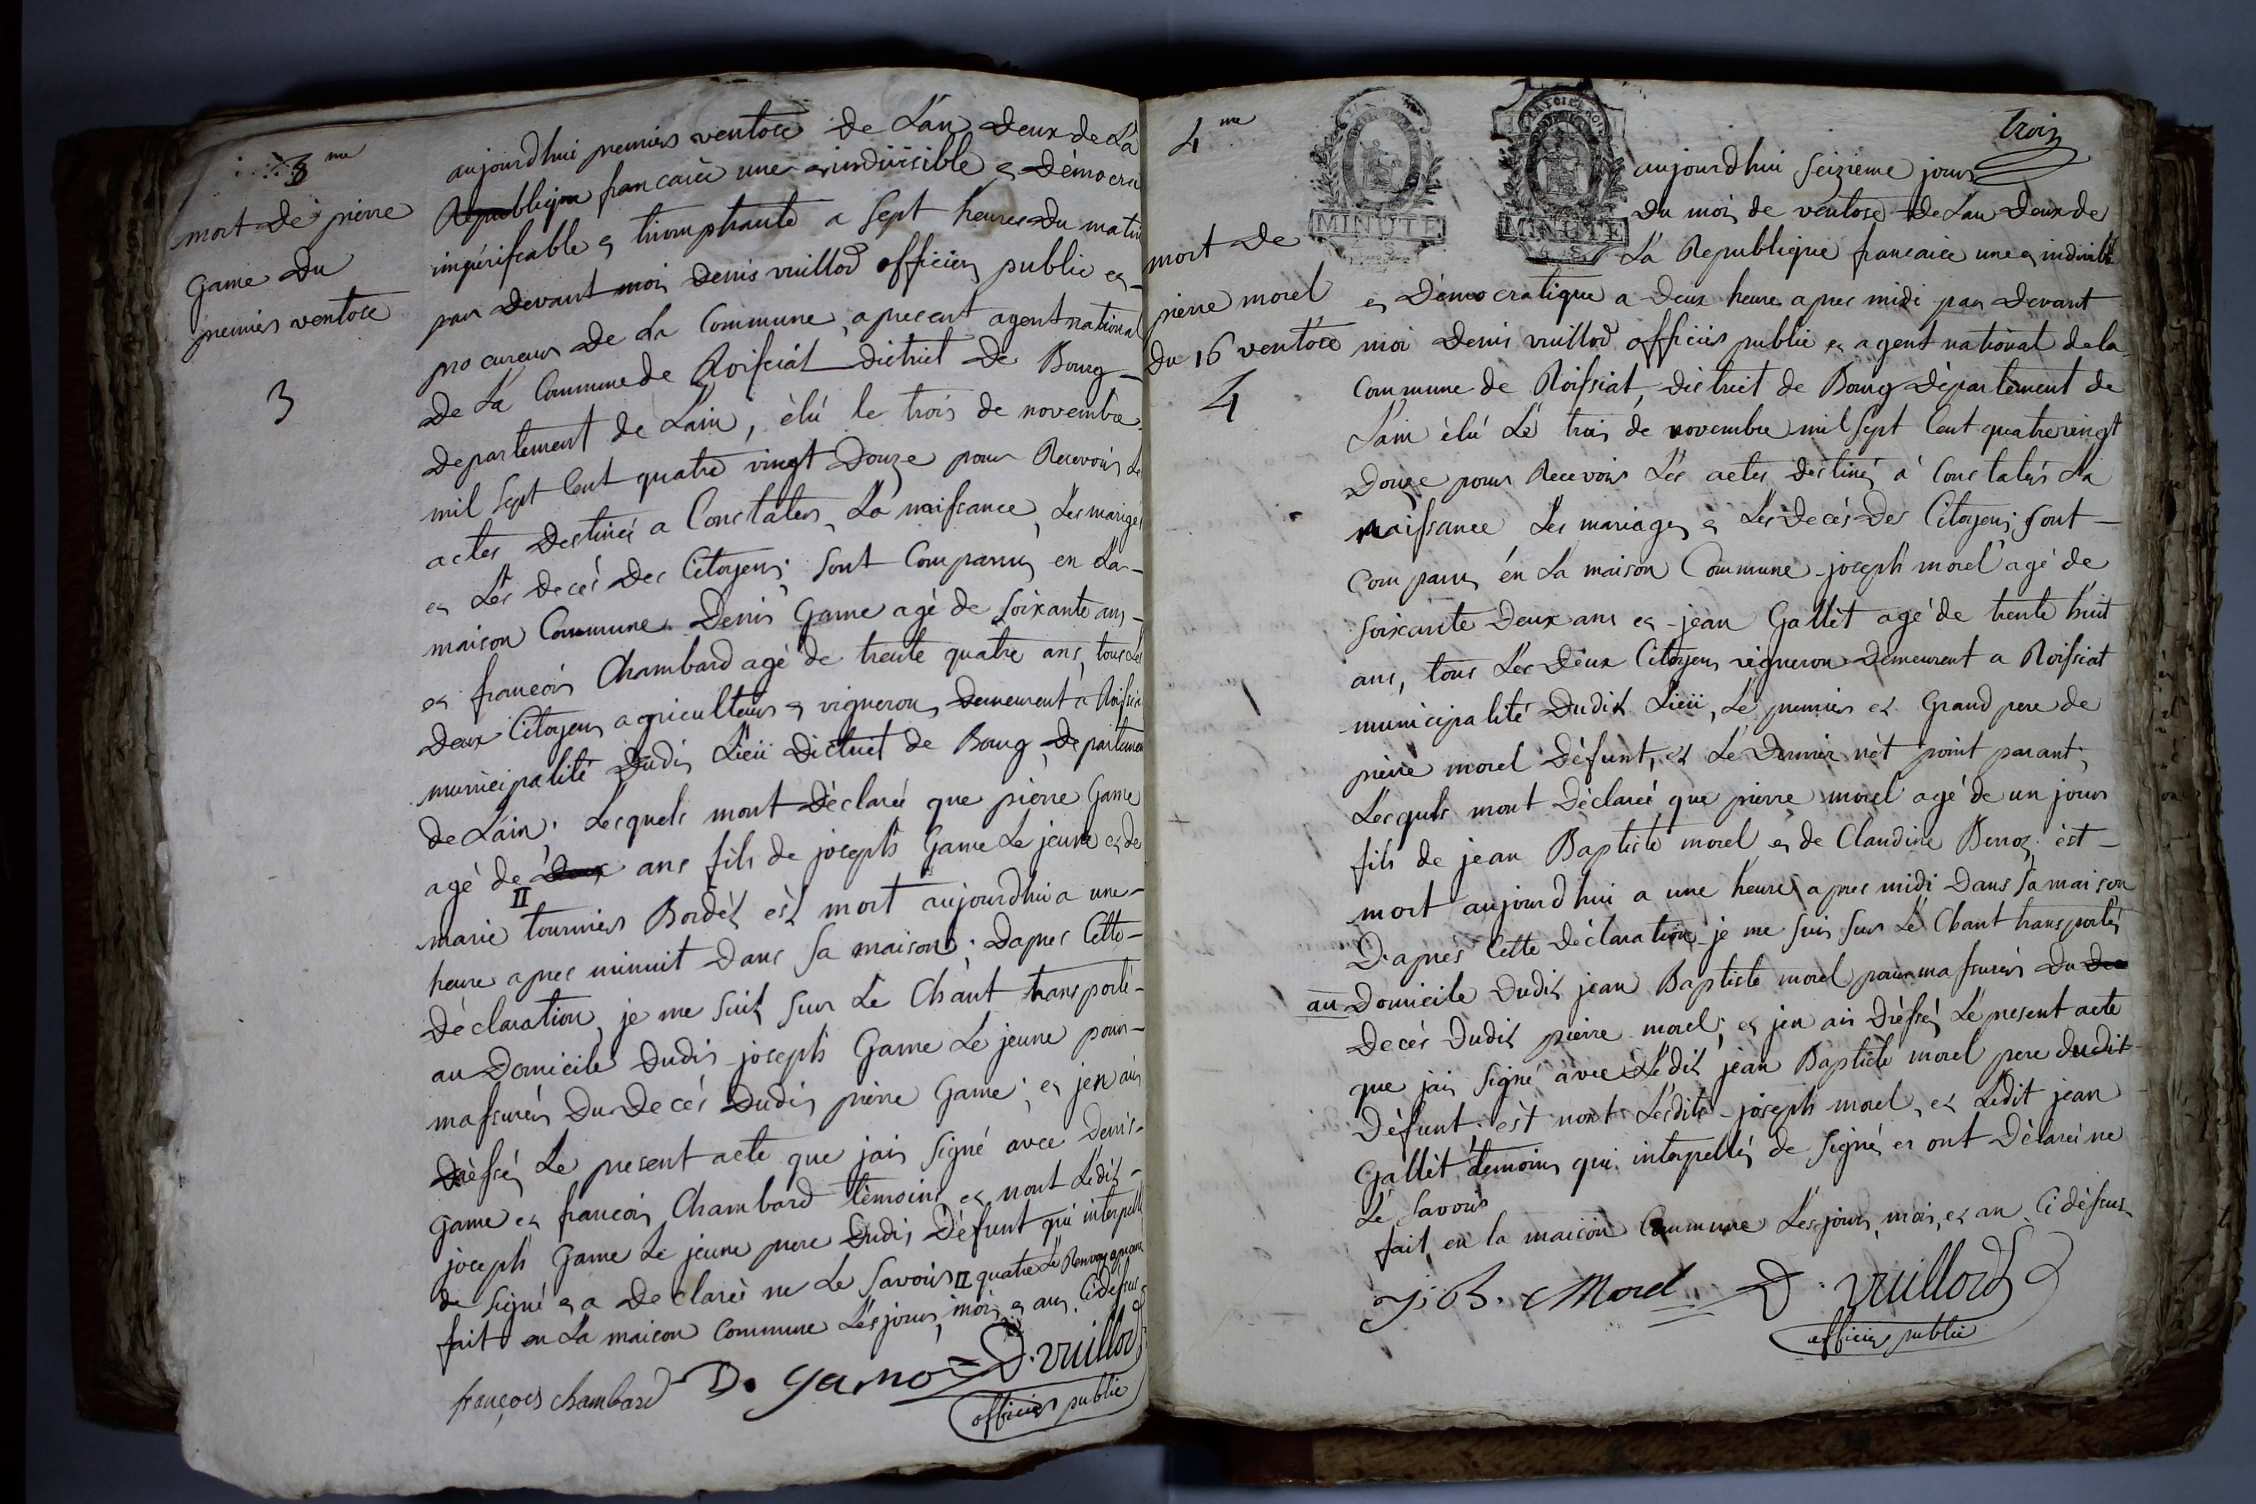 3 me
mort de pierre
Game du
premier ventose
3
aujourdhui premier ventose de L'an deux de La
Republique francaice une et indivisible et Démocra
impérissable et triomphante a sept heures du matin
par devant moi denis vuillod officier public et
procureur de La Commune, a present agent national
de La Commune de Roissiat district de Bourg
departement de L'ain, élú le trois de novembre
mil sept Cent quatre vingt Douze pour Recevoir Le
actes destinés a Constater, La naissance, Les mariges
et Les decés des Citoyens; sont Comparus en La
maison Commune Denis Game agé de soixante ans
et francois Chambard agé de trente quatre ans, tous Les
deux Citoyens agriculteurs et vignerons demeurent a Roissia
municipalité dudit Lieü district de Bourg departemen
de Lain; Lesquels mont déclaré que pierre Game
agé de deux ans fils de joseph Game Le jeune et de
II
marie tournier Bordet est mort aujourdhui a une
heure apres minuit dans sa maison; Dapres Cette
déclaration, je me suit sur Le Chant transporté
au Domicile dudit joseph Game Le jeune pour
massurer Du Decés dudit pierre Game; et jen ais
dressé Le present acte que jais signé avec denis
Game et francois Chambard témoins et nont Ledit
joseph Game Le jeune pere dudit Défunt qui interpellé
de signé et a declaré ne Le savoir II quatre Le Renvoy aprouvé
fait en La maison commune Les jour, mois et an Cidessus
françois chambard D. game D. vuillod
officier public
4 me
MINUTE
MINUTE
trois
mort de
pierre morel
du 16 ventose
4
aujourdhui seizième jour
Du mois de ventose de Lan deux de
La Republique francaice une et indivisible
et Démocratique a deux heures apres midi par devant
moi denis vuillod officier public et agent national de la
Commune de Roissiat, district de Bourg département de
Lain élú Le trois de novembre mil sept Cent quatrevingt
Douze pour Recevoir Les actes destinés à Constater La
naissance Les mariages et Les decés des Citoyens; sont
Comparus én La maison Commune joseph morel agé de
soixante Deux ans et jean Gallet agé de trente huit
ans, tous Les deux Citoyens vigneron demeurent a Roissiat
municipalité Dudit Lieü, Le premier et Grand pere de
pierre morel Défunt, et Le Dernier nèt point parant;
Lesquels mont déclaré que pierre morel agé de un jour
fils de jean Baptiste morel et de Claudine Berroz est
mort aujourdhui a une heure apres midi Dans sa maison
D'apres Cette déclaration je me suis sur Le Chant transporté
au Domicile dudit jean Baptiste morel pour massurer du de
Decés dudit pierre morel; et jen ais dressé Le present acte
que jais signé avec Ledit jean Baptiste morel pere dudit
Défunt; èt nont Lesdits joseph morel, et Ledit jean
Gallèt témoins qui interpellés de signé et ont Déclaré ne
Le savoir
fait en la maison Commune Les jour, mois, et an Cidéssus
J. B. Morel D. vuillod
officier public